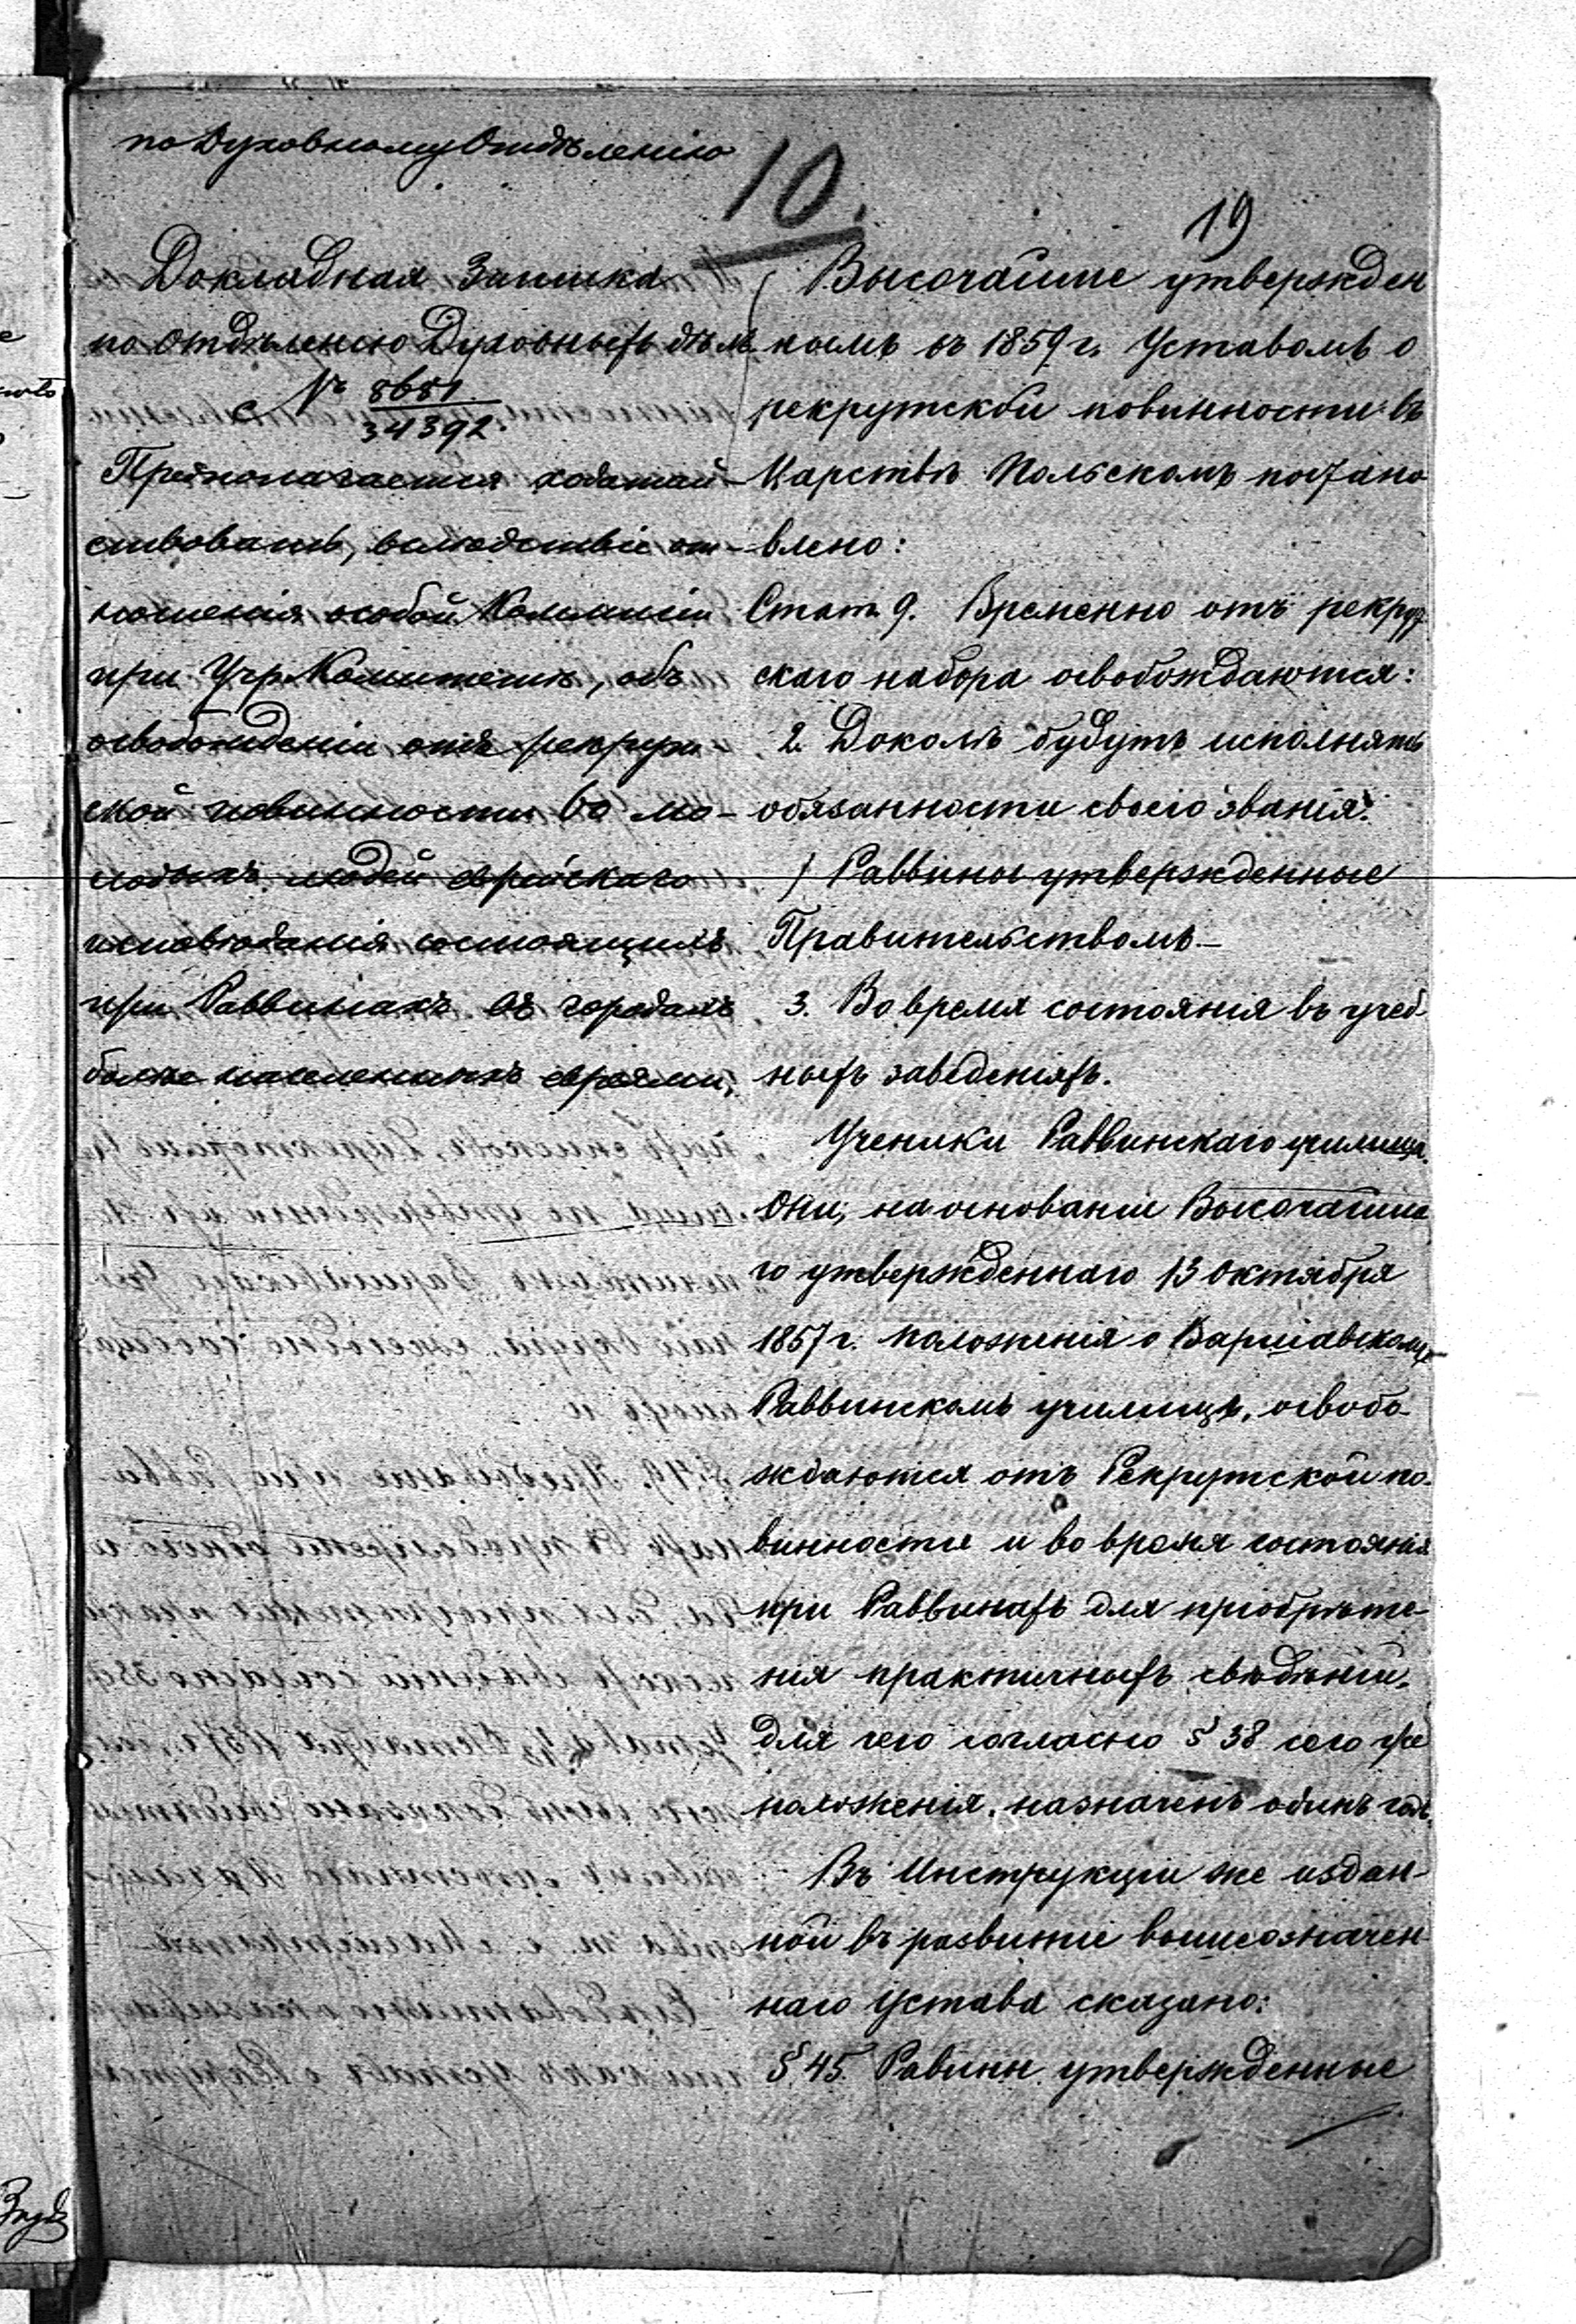 по Духовному Отдѣленію
10.
19
Докладная Записка
по Отдѣленію Духовныхъ дѣлъ
№ 8681
34392.
Предполагается ходатай-
ствовать, вслѣдствіе от-
ношенія особой Коммисіи
при Учр. Комитетѣ, объ
освобожденіи отъ рекрут-
ской повинности 60 мо-
лодыхъ людей еврейскаго
исповѣданія состоящихъ
при Раввинахъ въ городахъ
болѣе населенныхъ евреями,
Высочайше утвержден
нымъ въ 1859 г. Уставомъ о
рекрутской повинности въ
Царствѣ Польскомъ постано
влено:
Стат. 9. Временно отъ рекрут
скаго набора освобождаются:
2. Доколѣ будутъ исполнять
обязанности своего званія:
) Раввины утвержденные
Правительствомъ –
3. Во время состоянія въ учеб
ныхъ заведеніяхъ.
Ученики Раввинскаго училища.
Они, на основаніи Высочайше
го утвержденнаго 13 Октября
1857 г. положенія о Варшавскому
Раввинскомъ училищѣ, освобо-
ждаются отъ Рекрутской по-
винности и во время состоянія
при Раввинахъ для пріобрѣте-
нія практичныхъ свѣдѣній,
для чего согласно § 38 сего же
положенія, назначенъ одинъ годъ.
Въ Инструкціи же издан-
ной въ развитіе вышеозначен-
наго Устава сказано:
§ 45. Равины утвержденные